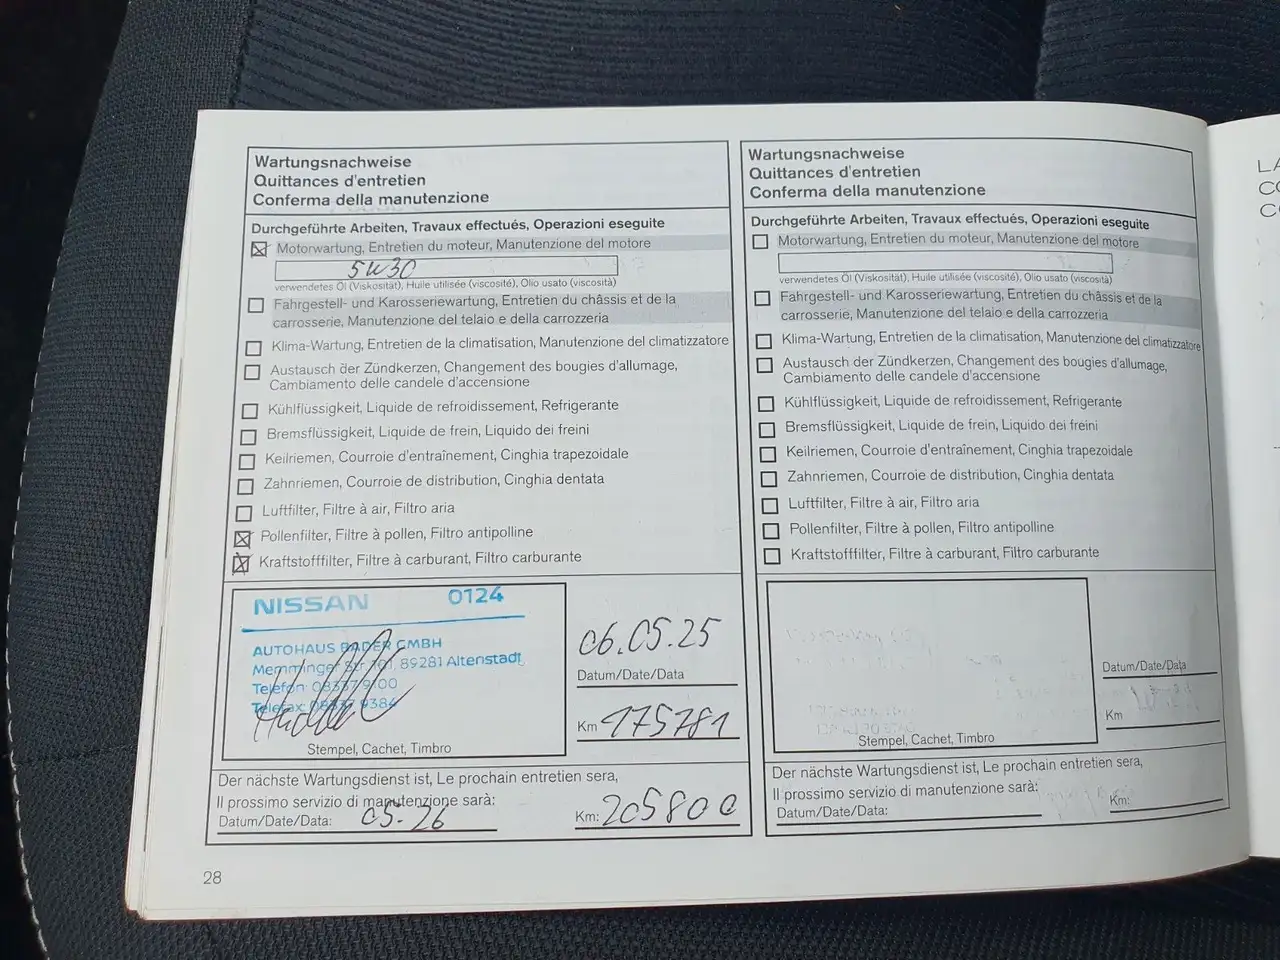 Wartungsnachweise
Quittances d'entretien
Conferma della manutenzione
Durchgeführte Arbeiten, Travaux effectués, Operazioni eseguite
Motorwartung, Entretien du moteur, Manutenzione del motore
5W30
verwendetes Öl (Viskosität), Huile utilisée (viscosité), Olio usato (viscosità)
Fahrgestell- und Karosseriewartung, Entretien du châssis et de la
carrosserie, Manutenzione del telaio e della carrozzeria
Klima-Wartung, Entretien de la climatisation, Manutenzione del climatizzatore
Austausch der Zündkerzen, Changement des bougies d'allumage,
Cambiamento delle candele d'accensione
Kühlflüssigkeit, Liquide de refroidissement, Refrigerante
Bremsflüssigkeit, Liquide de frein, Liquido dei freini
Keilriemen, Courroie d'entraînement, Cinghia trapezoidale
Zahnriemen, Courroie de distribution, Cinghia dentata
Luftfilter, Filtre à air, Filtro aria
Pollenfilter, Filtre à pollen, Filtro antipolline
Kraftstofffilter, Filtre à carburant, Filtro carburante
NISSAN 0124
AUTOHAUS BADER GMBH
Memminger Str. 101, 89281 Altenstadt
Telefon 08337 9100
Telefax 08337 9384
Stempel, Cachet, Timbro
06.05.25
Datum/Date/Data
Km 175781
Der nächste Wartungsdienst ist, Le prochain entretien sera,
Il prossimo servizio di manutenzione sarà:
Datum/Date/Data: 05-26 Km: 205800
28
Wartungsnachweise
Quittances d'entretien
Conferma della manutenzione
Durchgeführte Arbeiten, Travaux effectués, Operazioni eseguite
Motorwartung, Entretien du moteur, Manutenzione del motore
verwendetes Öl (Viskosität), Huile utilisée (viscosité), Olio usato (viscosità)
Fahrgestell- und Karosseriewartung, Entretien du châssis et de la
carrosserie, Manutenzione del telaio e della carrozzeria
Klima-Wartung, Entretien de la climatisation, Manutenzione del climatizzatore
Austausch der Zündkerzen, Changement des bougies d'allumage,
Cambiamento delle candele d'accensione
Kühlflüssigkeit, Liquide de refroidissement, Refrigerante
Bremsflüssigkeit, Liquide de frein, Liquido dei freini
Keilriemen, Courroie d'entraînement, Cinghia trapezoidale
Zahnriemen, Courroie de distribution, Cinghia dentata
Luftfilter, Filtre à air, Filtro aria
Pollenfilter, Filtre à pollen, Filtro antipolline
Kraftstofffilter, Filtre à carburant, Filtro carburante
Stempel, Cachet, Timbro
Datum/Date/Data
Km
Der nächste Wartungsdienst ist, Le prochain entretien sera,
Il prossimo servizio di manutenzione sarà:
Datum/Date/Data: Km: